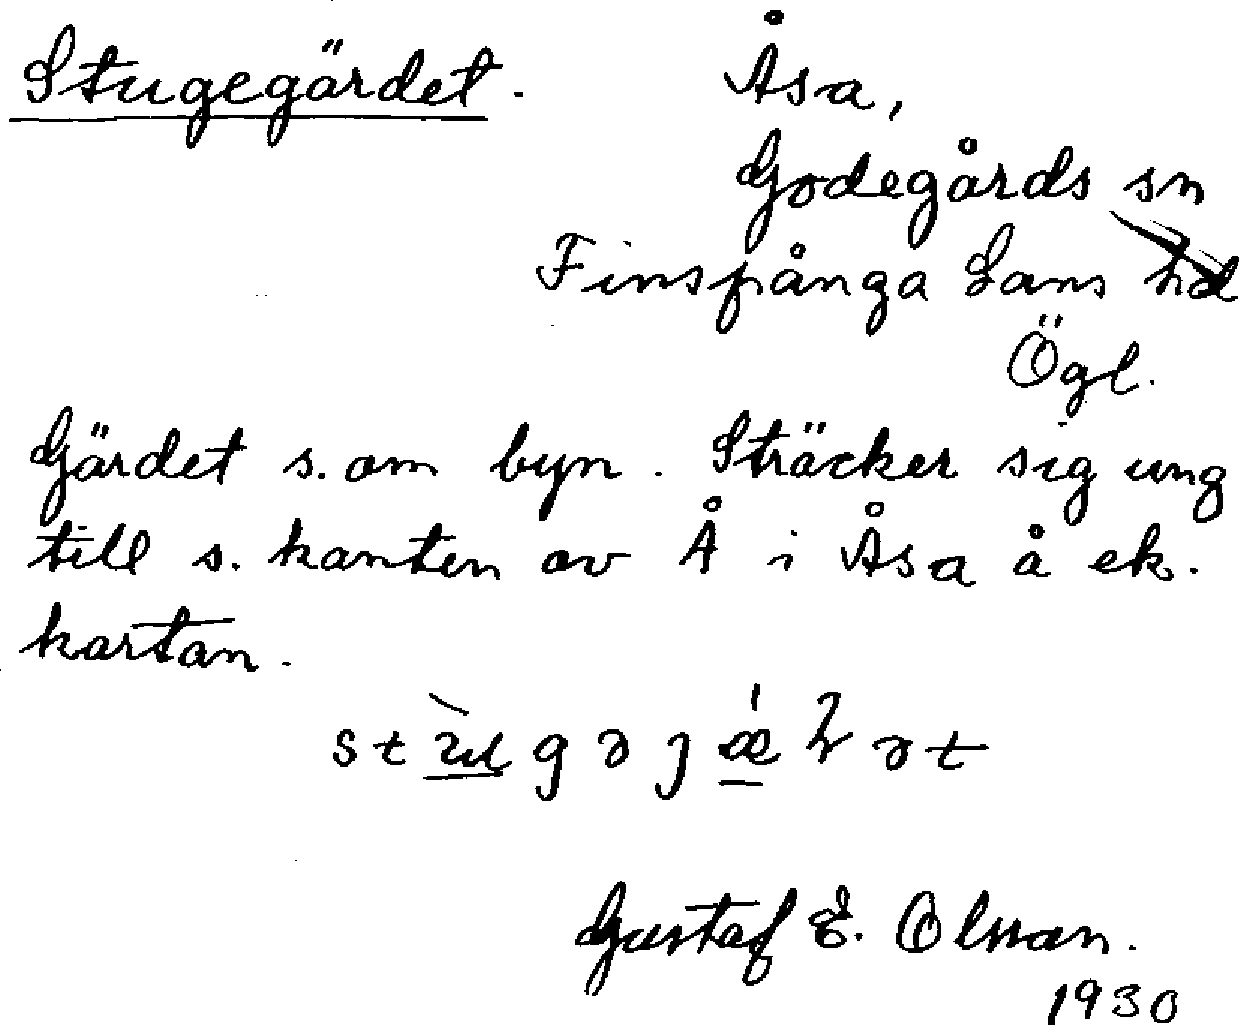 Stugegärdet.
Åsa,
Godegårds sn
Finspånga Läns hd
Ögl.
Gärdet s. om byn. Sträcker sig ung
till s. kanten av Å i Åsa å ek.
kartan.
Gustaf E. Olsson.
1930